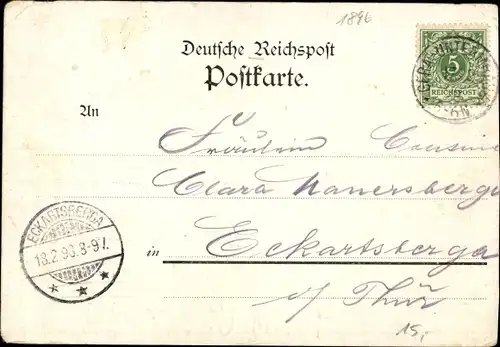 1896
Deutsche Reichspost
Postkarte.
5
REICHSPOST
An
Fräulein
Clara
ECKARTSBERGA
18.2.96.8-9V.
in Eckartsberga
o/ Thür
15,-